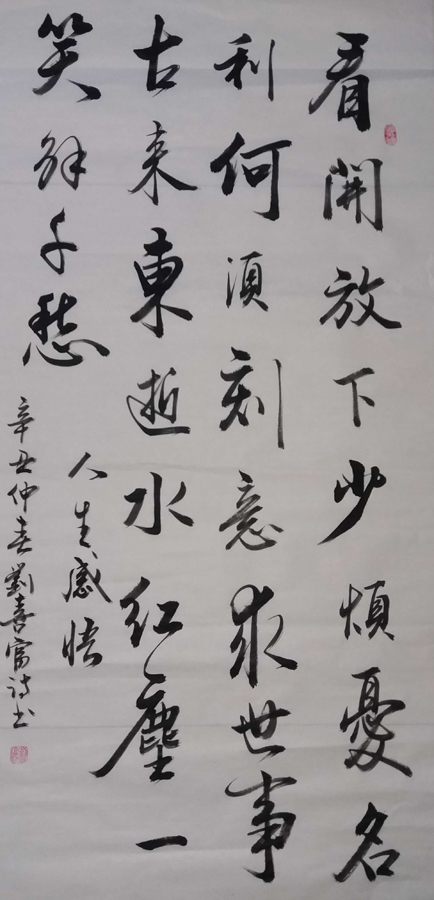 看開放下少煩憂名
利何須刻意求世事
古来東逝水紅塵一
笑解千愁
人生感悟
辛丑仲春劉喜富詩书